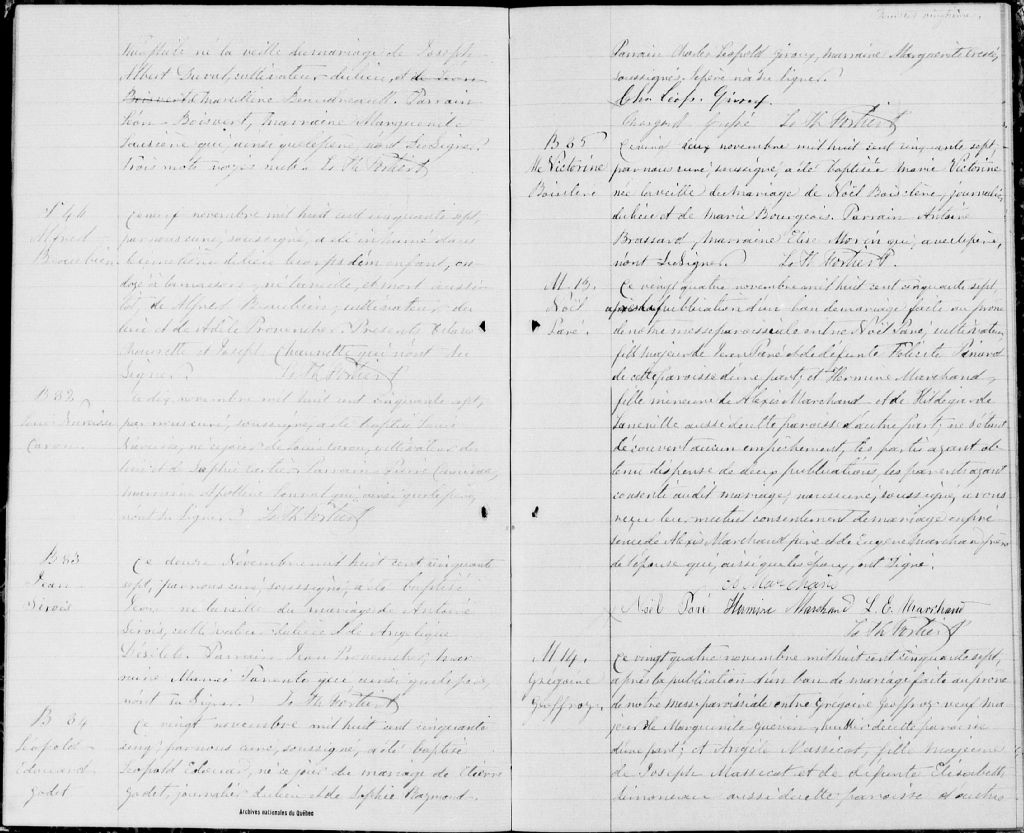 né la veille du mariage de Joseph
Albert Duval, cultivateur du lieu, et de Léon
Boisvert et Marcelline Beaudreault. Parrain
Léon Boisvert, marraine Marguerite
qui, ainsi que le père, n'ont su signer.
Trois mots rayés nuls. Ls Th Fortier Ptr
S 46
Alfred
Beaubien
Ce neuf novembre mil huit cent cinquante sept,
par nous curé, soussigné, a été inhumé dans
le cimetière du lieu le corps d'un enfant, on-
doyé à la maison, né la veille, et mort aussi-
tôt, de Alfred Beaubien, cultivateur du
lieu et de Adèle Provencher. Présents
Chaurette et Joseph Chaurette qui n'ont su
signer. Ls Th Fortier Ptr
B 82
Louis Narcisse
Caron
Ce dix novembre mil huit cent cinquante sept,
par nous curé, soussigné, a été baptisé Louis
Narcisse, né ce jour de Louis Caron, cultivateur du
lieu et de Sophie Cartier. Parrain Pierre
marraine Apolline qui, ainsi que le père,
n'ont su signer. Ls Th Fortier Ptr
B 83
Jean
Sirois
Ce douze Novembre mil huit cent cinquante
sept, par nous curé, soussigné, a été baptisé
Jean né la veille du mariage de Antoine
Sirois, cultivateur du lieu et de Angélique
Désilets. Parrain Jean Provencher, mar-
raine qui ainsi que le père,
n'ont su signer. Ls Th Fortier Ptr
B 84
Léopold
Edouard
Godet
Ce vingt novembre mil huit cent cinquante
sept, par nous curé, soussigné, a été baptisé
Léopold Edouard, né ce jour du mariage de Etienne
Godet, journalier du lieu et de Sophie Raymond.
Archives nationales du Québec
Parrain Charles Léopold Giroux, marraine Marguerite
soussignés, le père n'a su signer.
Cha Léop. Giroux.
Ls Th Fortier Ptr
B 85
M. Victorine
Boisclere
Ce vingt deux novembre mil huit cent cinquante sept,
par nous curé, soussigné, a été baptisée Marie Victorine
née la veille du mariage de Noël Boisclère, journalier
du lieu et de Marie Bourgeois. Parrain Antoine
Brassard, Marraine Elise Morin qui, avec le père,
n'ont su signer. Ls Th Fortier Ptr
M. 13.
Noël
Paré.
Ce vingt quatre novembre mil huit cent cinquante sept,
après la publication d'un ban de mariage faite au prone
de notre messe paroissiale entre Noël Paré, cultivateur,
fils majeur de Jean Paré et de défunte Félicité Pinard
de cette paroisse d'une part; et Hermine Marchand,
fille mineure de Alexis Marchand et de Hildegarde
Laneville aussi de cette paroisse d'autre part; ne s'étant
découvert aucun empêchement, les parties ayant ob-
tenu dispense de deux publications, les parents ayant
consenti audit mariage, nous curé, soussigné, avons
reçu leur mutuel consentement de mariage en pré-
sence de Alexis Marchand père et de Eugène Marchand frère
de l'épouse qui, ainsi que les époux, ont signé.
A Marchand
Noël Paré Hermine Marchand L. E. Marchand
Ls Th Fortier Ptr
M. 14.
Grégoire
Geoffroy
Ce vingt quatre novembre mil huit cent cinquante sept,
après la publication d'un ban de mariage faite au prone
de notre messe paroissiale entre Grégoire Geoffroy veuf ma-
jeur de Marguerite Guérin, huissier de cette paroisse
d'une part; et Angèle Massicot, fille majeure
de Joseph Massicot et de défunte Elisabeth
Simoneau aussi de cette paroisse d'autre